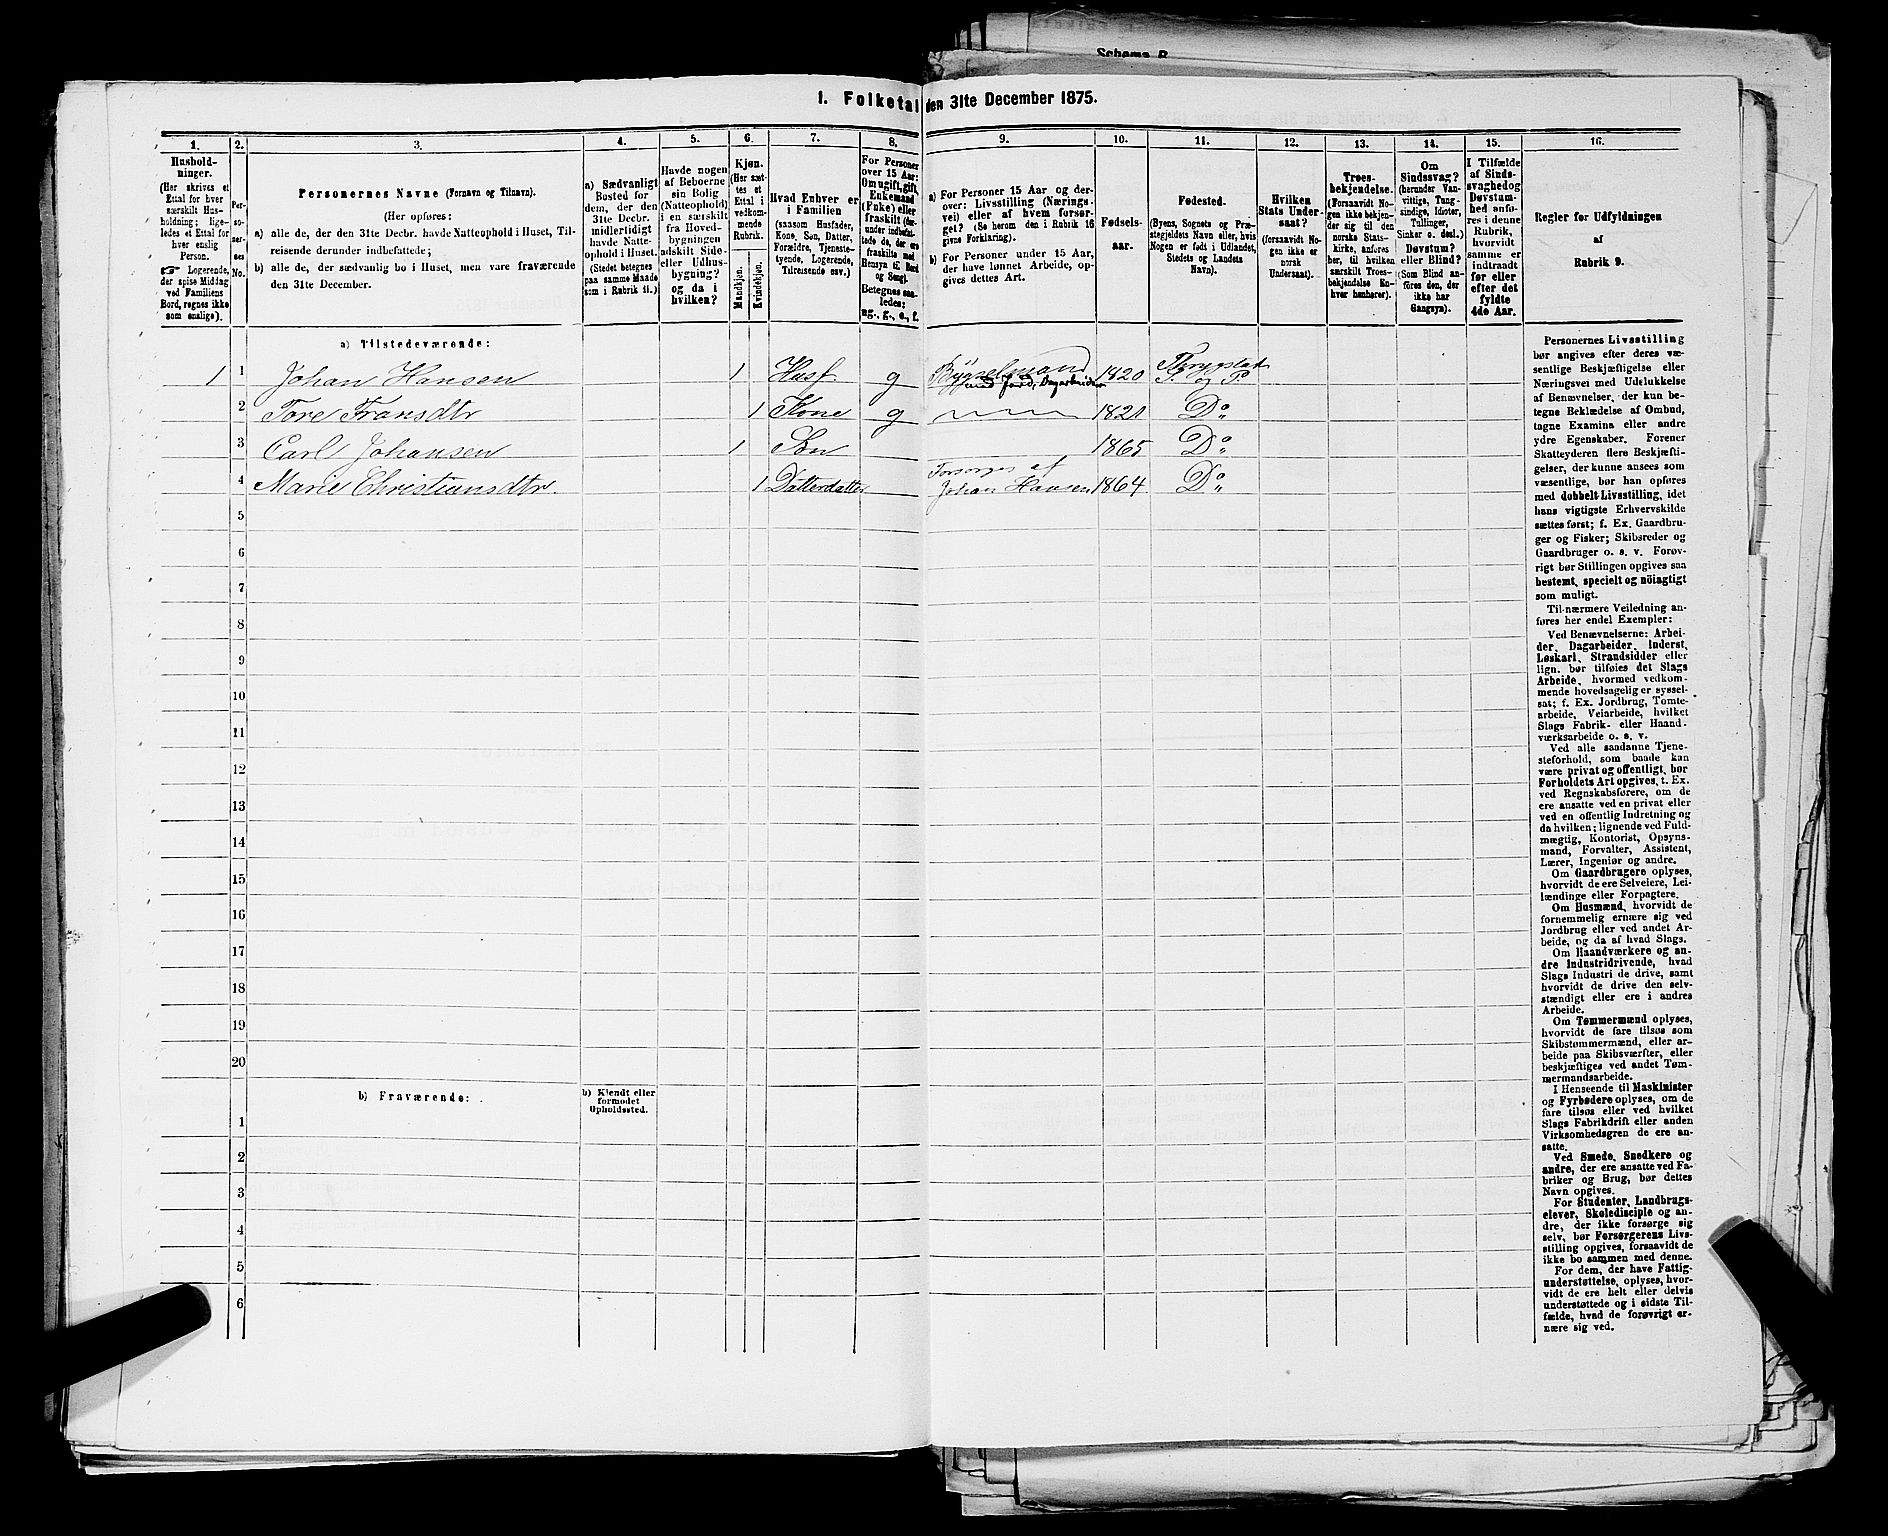 Schema B
1. Folketal den 31te December 1875.
1. 2. 3. 4. 5. 6. 7. 8. 9. 10. 11. 12. 13. 14. 15. 16.
Husholdninger.
(Her skrives et
Ettal for hver
særskilt Husholdning; ligeledes et Ettal for
hver enslig
Person.
☞ Logerende,
der spise Middag
ved Familiens
Bord, regnes ikke
som enslige).
Personernes No.
Personernes Navne (Fornavn og Tilnavn).
(Her opføres:
a) alle de, der den 31te Decbr. havde Natteophold i Huset, Tilreisende derunder indbefattede;
b) alle de, der sædvanlig bo i Huset, men vare fraværende
den 31te December.
a) Sædvanligt
Bosted for
dem, der den
31te Decbr.
midlertidigt
havde Natteophold i Huset.
(Stedet betegnes
paa samme Maade
som i Rubrik 11.)
Havde nogen
af Beboerne
sin Bolig
(Natteophold)
i en særskilt
fra Hovedbygningen
adskilt Side-
eller Udhusbygning?
og da i
hvilken?
Kjøn.
(Her sættes et
Ettal i
vedkommende
Rubrik.
Mandkjøn.
Kvindekjøn.
Hvad Enhver er
i Familien
(saasom Husfader,
Kone, Søn, Datter,
Forældre, Tjenestetyende, Logerende,
Tilreisende osv.)
For Personer
over 15 Aar:
Om ugift, gift,
Enkemand
(Enke) eller
fraskilt (herunder indbefattede de, der ere
fraskilte med
Hensyn til Bord
og Seng).
Betegnes saaledes:
ug., g., e., f.
a) For Personer 15 Aar og derover: Livsstilling (Næringsvei) eller af hvem forsørget? (Se herom den i Rubrik 16
givne Forklaring).
b) For Personer under 15 Aar,
der have lønnet Arbeide, opgives dettes Art.
Fødselsaar.
Fødested.
(Byens, Sognets og Præstegjeldets Navn eller, hvis
Nogen er født i Udlandet,
Stedets og Landets
Navn).
Hvilken
Stats Undersaat?
(forsaavidt Nogen ikke er
norsk
Undersaat).
Troesbekjendelse.
(Forsaavidt Nogen ikke bekjender sig til den
norske Statskirke, anføres
her, til hvilken
særskilt Troesbekjendelse Enhver henhører).
Om
Sindssvag?
(herunder Vanvittige, Tungsindige, Idioter,
Tullinger,
Sinker o. desl.)
Døvstum?
eller Blind?
(Som Blind anføres den, der
ikke har
Gangsyn).
I Tilfælde
af Sindssvaghed og
Døvstumhed anføres i denne
Rubrik,
hvorvidt
samme er
indtraadt
før eller
efter det
fyldte
4de Aar.
Regler for Udfyldningen
af
Rubrik 9.
a) Tilstedeværende:
1 1 Johan Hansen 1 Husf. g Bygselmand med Jord, Dagarbeider 1820 S. og P.
2 Tore Fransdtr 1 Kone g 1821 Do
3 Carl Johansen 1 Søn 1865 Do
4 Marie Christiansdtr. 1 Datterdatter Forsørges af Johan Hansen 1864 Do
5
6
7
8
9
10
11
12
13
14
15
16
17
18
19
20
b) Fraværende:
b) Kjendt eller
formodet
Opholdssted.
1
2
3
4
5
6
Personernes Livsstilling
bør angives efter deres væsentlige Beskjæftigelse eller
Næringsvei med Udelukkelse
af Benævnelser, der kun betegne Beklædelse af Ombud,
tagne Examina eller andre
ydre Egenskaber. Forener
Skatteyderen flere Beskjæftigelser, der kunne ansees som
væsentlige, bør han opføres
med dobbelt Livsstilling, idet
hans vigtigste Erhvervskilde
sættes først; f. Ex. Gaardbruger og Fisker; Skibsreder og
Gaardbruger o. s. v. Forøvrigt bør Stillingen opgives saa
bestemt, specielt og nöiagtigt
som muligt.
Til nærmere Veiledning anføres her endel Exempler:
Ved Benævnelserne: Arbeider, Dagarbeider, Inderst,
Løskarl, Strandsidder eller
lign. bør tilføies det Slags
Arbeide, hvormed vedkommende hovedsagelig er sysselsat; f. Ex. Jordbrug, Tomtearbeide, Veiarbeide, hvilket
Slags Fabrik- eller Haandværksarbeide o. s. v.
Ved alle saadanne Tjenesteforhold, som baade kan
være privat og offentligt, bør
Forholdets Art opgives, t. Ex.
ved Regnskabsførere, om de
ere ansatte ved en privat eller
ved en offentlig Indretning og
da hvilken; lignende ved Fuldmægtig, Kontorist, Opsynsmand, Forvalter, Assistent,
Lærer, Ingeniør og andre.
Om Gaardbrugere oplyses,
hvorvidt de ere Selveiere, Leilændinge eller Forpagtere.
Om Husmænd, hvorvidt de
fornemmelig ernære sig ved
Jordbrug eller ved andet Arbeide, og da af hvad Slags.
Om Haandværkere og andre Industridrivende, hvad
Slags Industri de drive, samt
hvorvidt de drive den selvstændigt eller ere i andres
Arbeide.
Om Tømmermænd oplyses,
hvorvidt de fare tilsøs som
Skibstømmermænd, eller arbeide paa Skibsværfter, eller
beskjæftiges ved andet Tømmermandsarbeide.
I Henseende til Maskinister
og Fyrbødere oplyses, om de
fare tilsøs eller ved hvilket
Slags Fabrikdrift eller anden
Virksomhedsgren de ere ansatte.
Ved Smede, Snedkere og
andre, der ere ansatte ved Fabriker og Brug, bør dettes
Navn opgives.
For Studenter, Landbrugselever, Skoledisciple og andre, der ikke forsørge sig
selv, bør Forsørgerens Livsstilling opgives, forsaavidt de
ikke bo sammen med denne.
For dem, der have Fattigunderstøttelse, oplyses, hvorvidt de ere helt eller delvis
understøttede og i sidste Tilfælde, hvad de forøvrigt ernære sig ved.